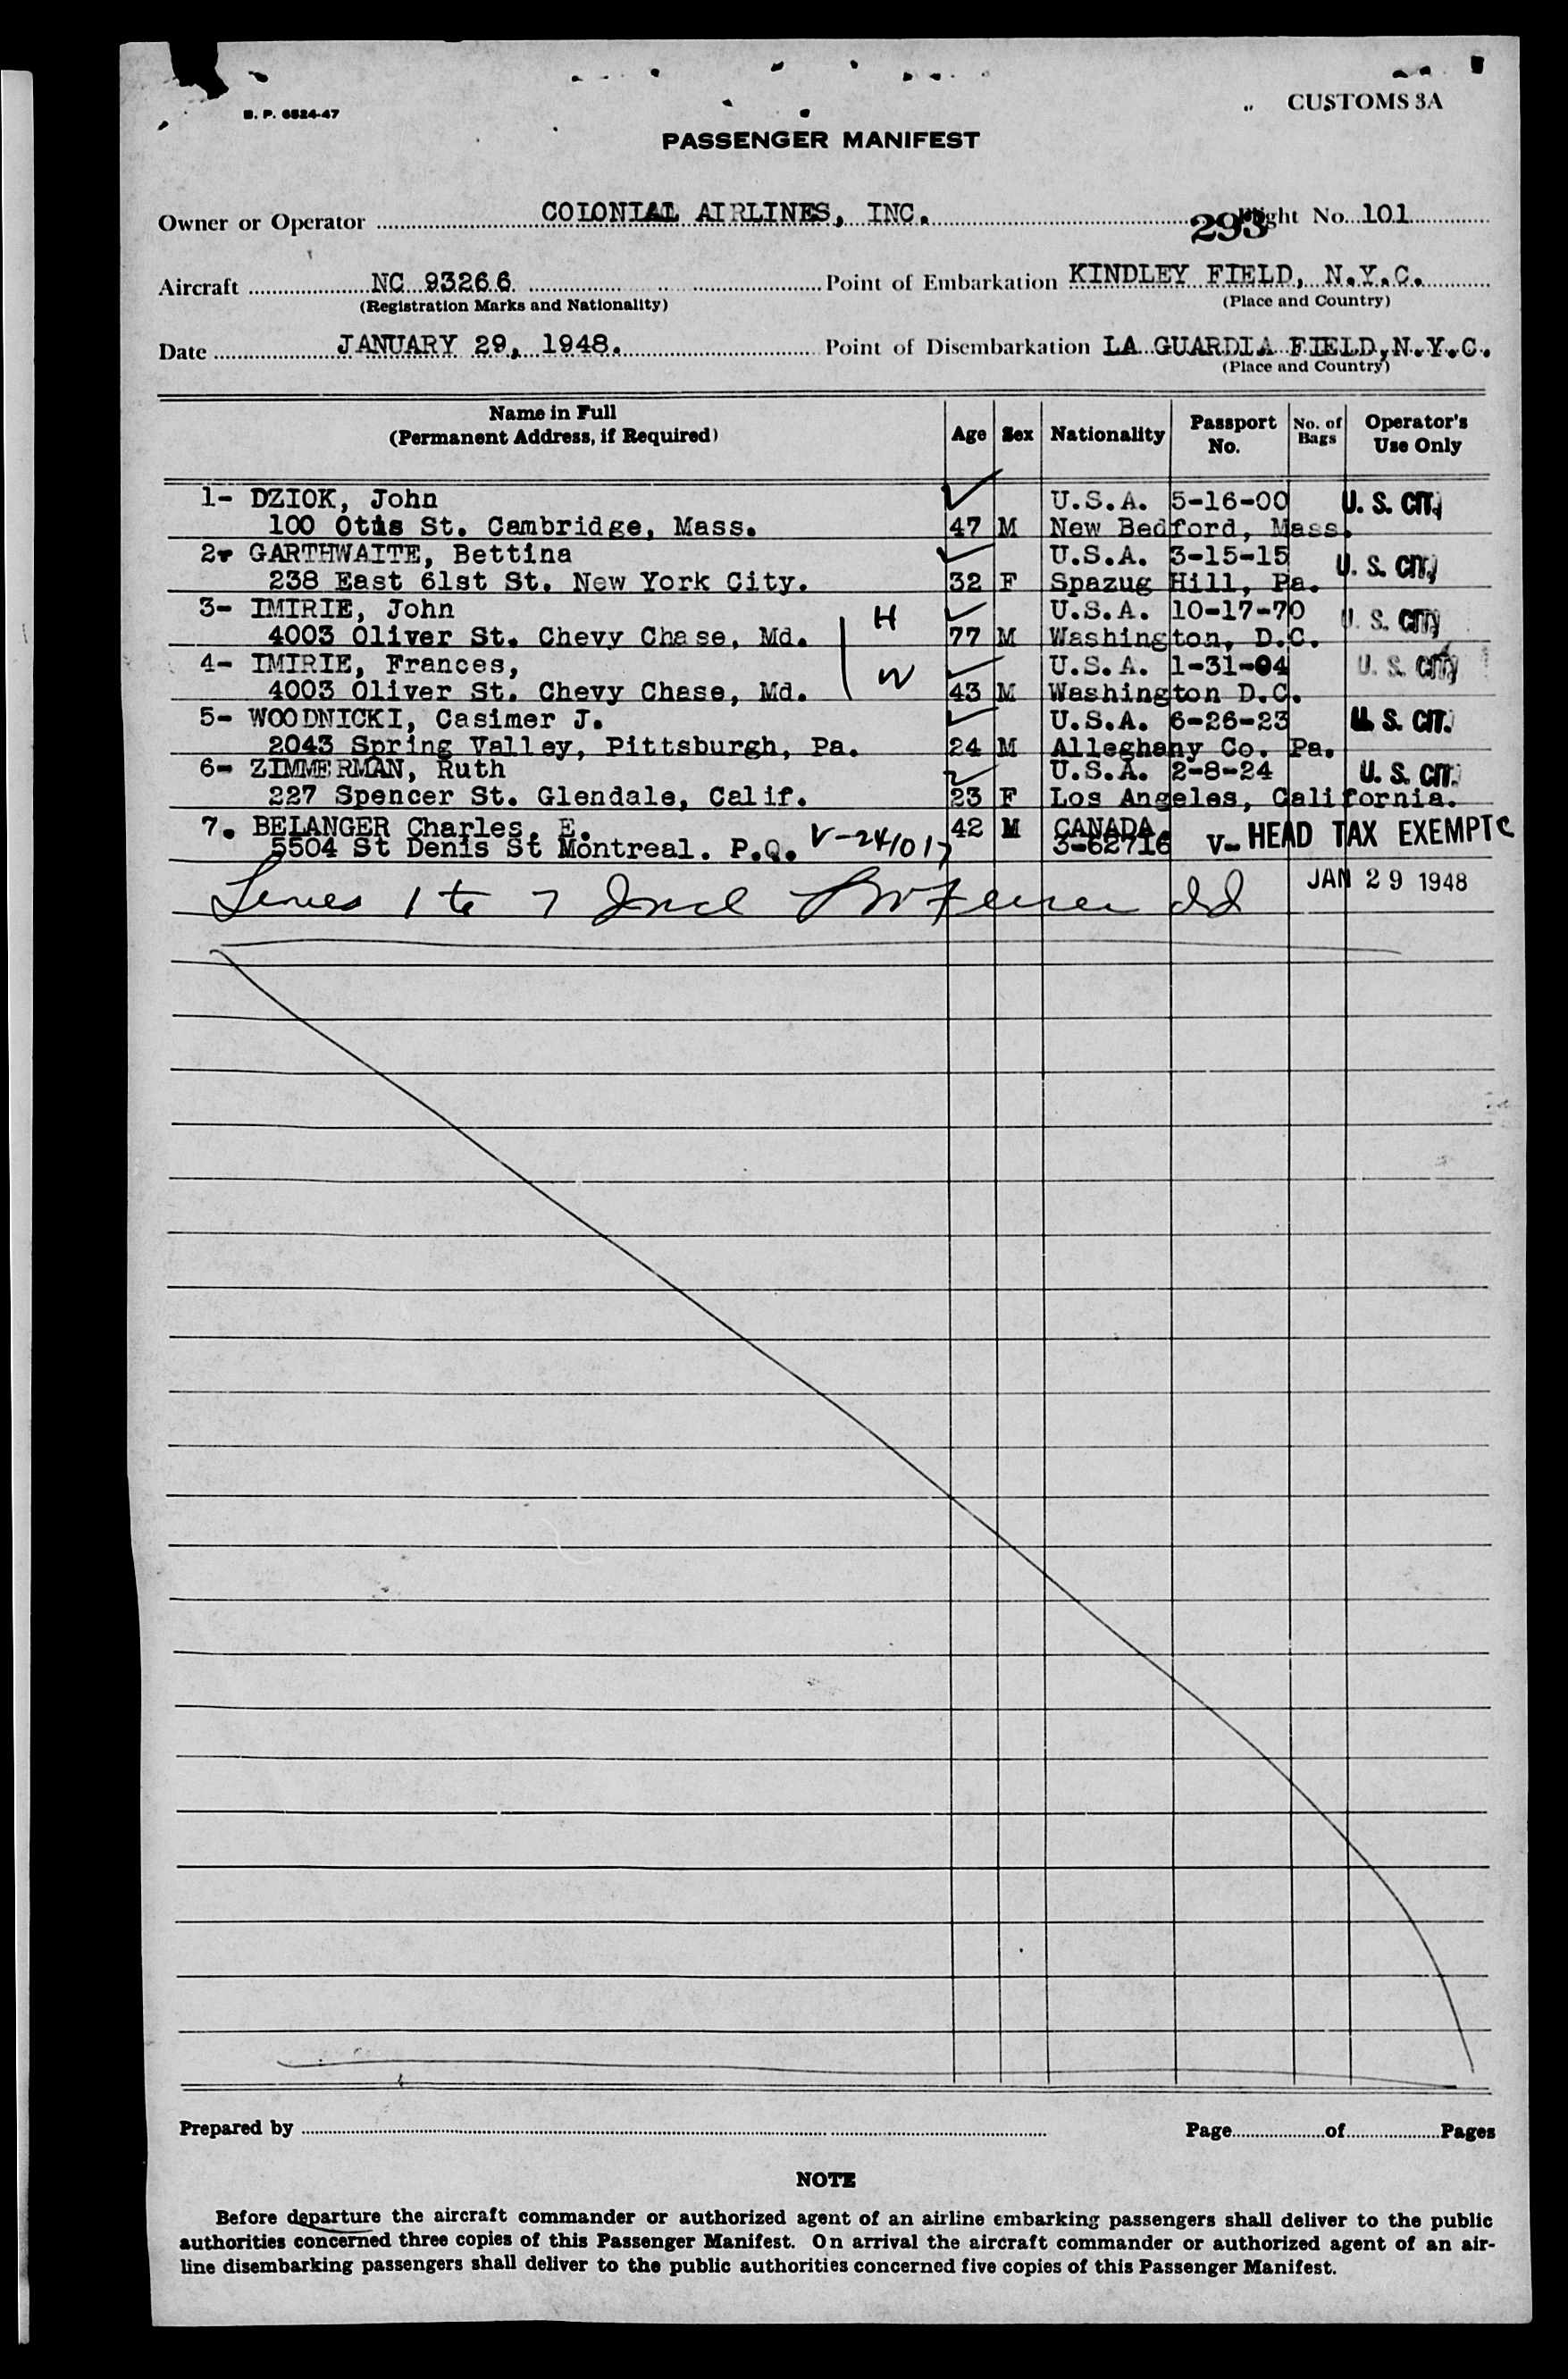 B. P. 6524-47
CUSTOMS 3A
PASSENGER MANIFEST
Owner or Operator COLONIAL AIRLINES, INC. 293 Flight No. 101
Aircraft NC 93266 Point of Embarkation KINDLEY FIELD, N.Y.C.
(Registration Marks and Nationality) (Place and Country)
Date JANUARY 29, 1948. Point of Disembarkation LA GUARDIA FIELD, N.Y.C.
(Place and Country)
Name in Full (Permanent Address, if Required) Age Sex Nationality Passport No. No. of Bags Operator's Use Only
1- DZIOK, John U.S.A. 5-16-00 U. S. CIT.
100 Otis St. Cambridge, Mass. 47 M New Bedford, Mass.
2- GARTHWAITE, Bettina U.S.A. 3-15-15 U. S. CIT.
238 East 61st St. New York City. 32 F Spazug Hill, Pa.
3- IMIRIE, John H U.S.A. 10-17-70 U. S. CIT.
4003 Oliver St. Chevy Chase, Md. 77 M Washington, D.C.
4- IMIRIE, Frances, W U.S.A. 1-31-04 U. S. CIT.
4003 Oliver St. Chevy Chase, Md. 43 M Washington D.C.
5- WOODNICKI, Casimer J. U.S.A. 6-26-23 U. S. CIT.
2043 Spring Valley, Pittsburgh, Pa. 24 M Alleghany Co. Pa.
6- ZIMMERMAN, Ruth U.S.A. 2-8-24 U. S. CIT.
227 Spencer St. Glendale, Calif. 23 F Los Angeles, California.
7. BELANGER Charles. E. 42 M CANADA V- HEAD TAX EXEMPT C
5504 St Denis St Montreal. P.Q. V-241017 3-62716
Lines 1 to 7 Incl JAN 29 1948
Prepared by Page of Pages
NOTE
Before departure the aircraft commander or authorized agent of an airline embarking passengers shall deliver to the public
authorities concerned three copies of this Passenger Manifest. On arrival the aircraft commander or authorized agent of an air-
line disembarking passengers shall deliver to the public authorities concerned five copies of this Passenger Manifest.